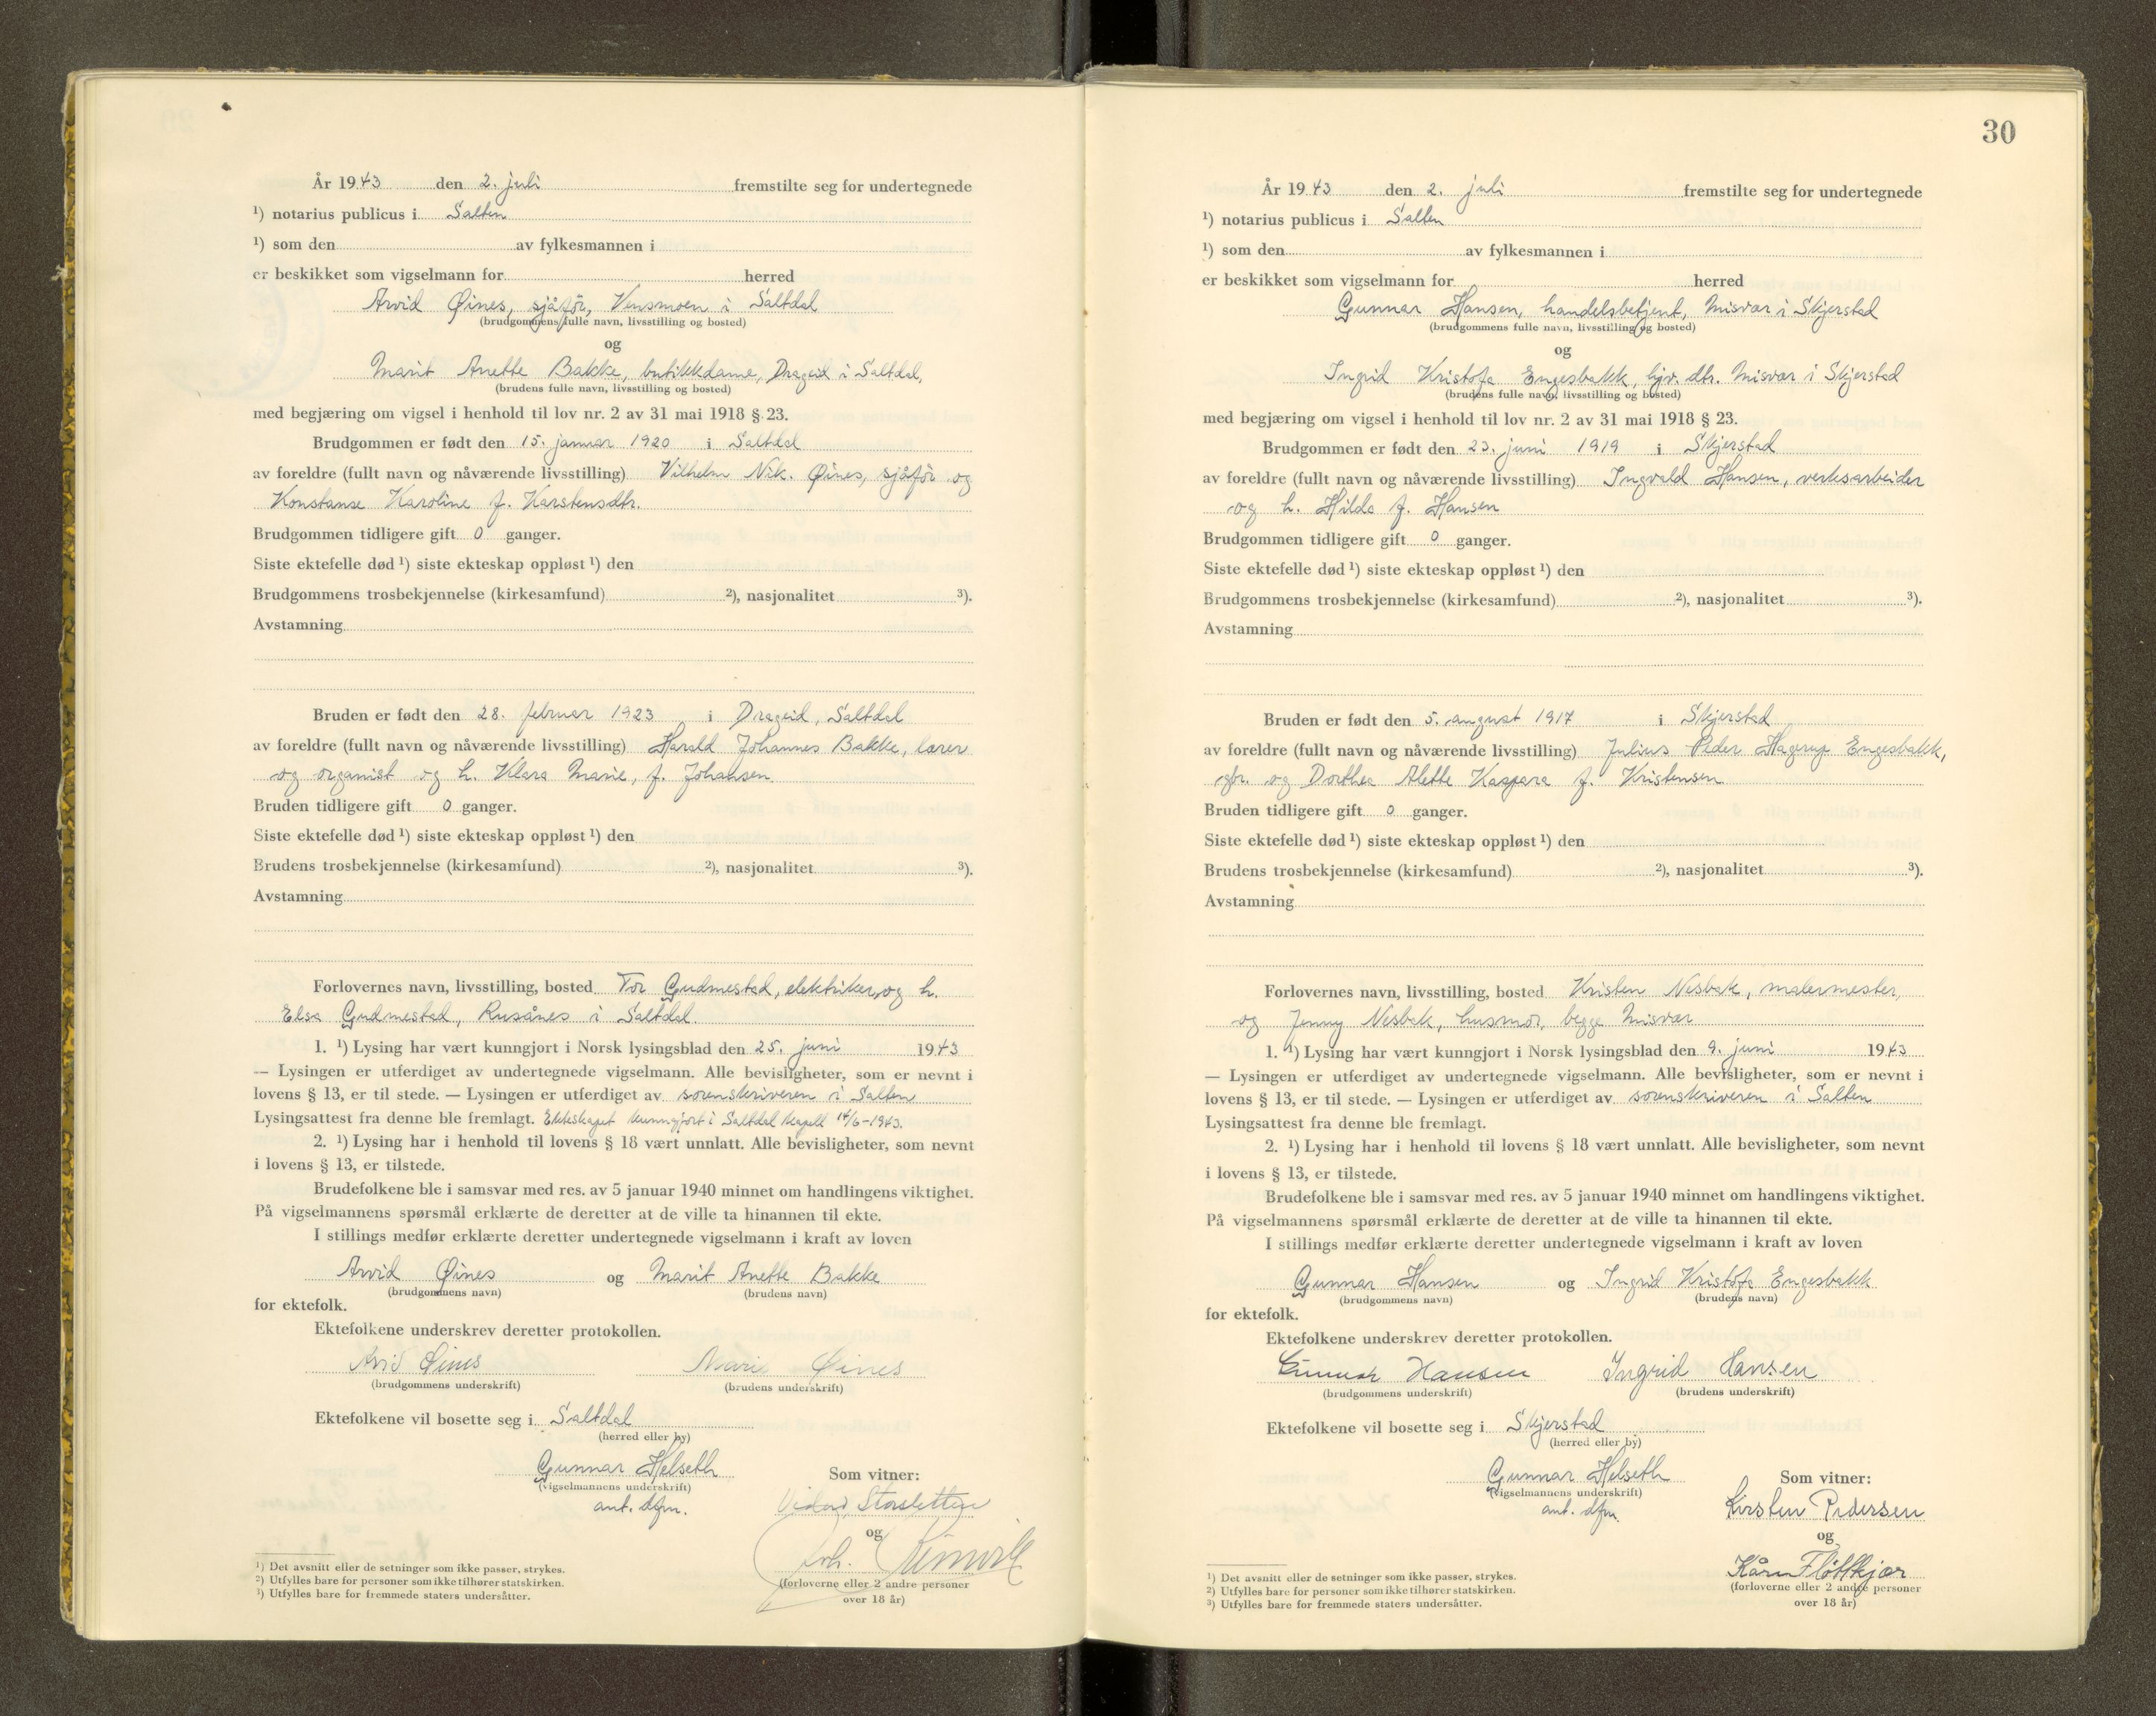 År 1943 den 2. juli fremstilte seg for undertegnede
¹) notarius publicus i Salten
¹) som den av fylkesmannen i
er beskikket som vigselmann for herred
Arvid Øines, sjåför, Vensmoen i Saltdal
(brudgommens fulle navn, livsstilling og bosted)
og
Marit Anette Bakke, butikkdame, Drageid i Saltdal,
(brudens fulle navn, livsstilling og bosted)
med begjæring om vigsel i henhold til lov nr. 2 av 31 mai 1918 § 23.
Brudgommen er født den 15. januar 1920 i Saltdal
av foreldre (fullt navn og nåværende livsstilling) Vilhelm Nik. Øines, sjåför og
Konstanse Karoline f. Karstensdtr.
Brudgommen tidligere gift 0 ganger.
Siste ektefelle død ¹) siste ekteskap oppløst ¹) den
Brudgommens trosbekjennelse (kirkesamfund) ²), nasjonalitet ³).
Avstamning
Bruden er født den 28. februar 1923 i Drageid, Saltdal
av foreldre (fullt navn og nåværende livsstilling) Harald Johannes Bakke, lærer
og organist og h. Klara Marie, f. Johansen
Bruden tidligere gift 0 ganger.
Siste ektefelle død ¹) siste ekteskap oppløst ¹) den
Brudens trosbekjennelse (kirkesamfund) ²), nasjonalitet ³).
Avstamning
Forlovernes navn, livsstilling, bosted Tor Gudmestad, elektriker, og h.
Elsa Gudmestad, Rusånes i Saltdal
1. ¹) Lysing har vært kunngjort i Norsk lysingsblad den 25. juni 1943
— Lysingen er utferdiget av undertegnede vigselmann. Alle bevisligheter, som er nevnt i
lovens § 13, er til stede. — Lysingen er utferdiget av sorenskriveren i Salten
Lysingsattest fra denne ble fremlagt. Ekteskapet kunngjort i Saltdal kapell 14/6-1943.
2. ¹) Lysing har i henhold til lovens § 18 vært unnlatt. Alle bevisligheter, som nevnt
i lovens § 13, er tilstede.
Brudefolkene ble i samsvar med res. av 5 januar 1940 minnet om handlingens viktighet.
På vigselmannens spørsmål erklærte de deretter at de ville ta hinannen til ekte.
I stillings medfør erklærte deretter undertegnede vigselmann i kraft av loven
Arvid Øines og Marit Anette Bakke
(brudgommens navn) (brudens navn)
for ektefolk.
Ektefolkene underskrev deretter protokollen.
Arvid Øines Marit Øines
(brudgommens underskrift) (brudens underskrift)
Ektefolkene vil bosette seg i Saltdal
(herred eller by)
Gunnar Helseth Som vitner:
(vigselmannens underskrift)
ant. dfm.
og
(forloverne eller 2 andre personer
over 18 år)
¹) Det avsnitt eller de setninger som ikke passer, strykes.
²) Utfylles bare for personer som ikke tilhører statskirken.
³) Utfylles bare for fremmede staters undersåtter.
30
År 1943 den 2. juli fremstilte seg for undertegnede
¹) notarius publicus i Salten
¹) som den av fylkesmannen i
er beskikket som vigselmann for herred
Gunnar Hansen, handelsbetjent, Misvær i Skjerstad
(brudgommens fulle navn, livsstilling og bosted)
og
Ingrid Kristofa Engesbakk, hjv. dtr. Misvær i Skjerstad
(brudens fulle navn, livsstilling og bosted)
med begjæring om vigsel i henhold til lov nr. 2 av 31 mai 1918 § 23.
Brudgommen er født den 23. juni 1919 i Skjerstad
av foreldre (fullt navn og nåværende livsstilling) Ingvald Hansen, verksarbeider
og h. Hilda f. Hansen
Brudgommen tidligere gift 0 ganger.
Siste ektefelle død ¹) siste ekteskap oppløst ¹) den
Brudgommens trosbekjennelse (kirkesamfund) ²), nasjonalitet ³).
Avstamning
Bruden er født den 5. august 1917 i Skjerstad
av foreldre (fullt navn og nåværende livsstilling) Julius Peder Hagerup Engesbakk,
gbr. og Dorthea Alette Kaspara f. Kristensen
Bruden tidligere gift 0 ganger.
Siste ektefelle død ¹) siste ekteskap oppløst ¹) den
Brudens trosbekjennelse (kirkesamfund) ²), nasjonalitet ³).
Avstamning
Forlovernes navn, livsstilling, bosted Kristen Nesbak, malermester,
og Jenny Nesbak, husmor, begge Misvær
1. ¹) Lysing har vært kunngjort i Norsk lysingsblad den 9. juni 1943
— Lysingen er utferdiget av undertegnede vigselmann. Alle bevisligheter, som er nevnt i
lovens § 13, er til stede. — Lysingen er utferdiget av sorenskriveren i Salten
Lysingsattest fra denne ble fremlagt.
2. ¹) Lysing har i henhold til lovens § 18 vært unnlatt. Alle bevisligheter, som nevnt
i lovens § 13, er tilstede.
Brudefolkene ble i samsvar med res. av 5 januar 1940 minnet om handlingens viktighet.
På vigselmannens spørsmål erklærte de deretter at de ville ta hinannen til ekte.
I stillings medfør erklærte deretter undertegnede vigselmann i kraft av loven
Gunnar Hansen og Ingrid Kristofa Engesbakk
(brudgommens navn) (brudens navn)
for ektefolk.
Ektefolkene underskrev deretter protokollen.
Gunnar Hansen Ingrid Hansen
(brudgommens underskrift) (brudens underskrift)
Ektefolkene vil bosette seg i Skjerstad
(herred eller by)
Gunnar Helseth Som vitner:
(vigselmannens underskrift) Kirsten Pedersen
ant. dfm.
og
Kåre Fløttkjær
(forloverne eller 2 andre personer
over 18 år)
¹) Det avsnitt eller de setninger som ikke passer, strykes.
²) Utfylles bare for personer som ikke tilhører statskirken.
³) Utfylles bare for fremmede staters undersåtter.